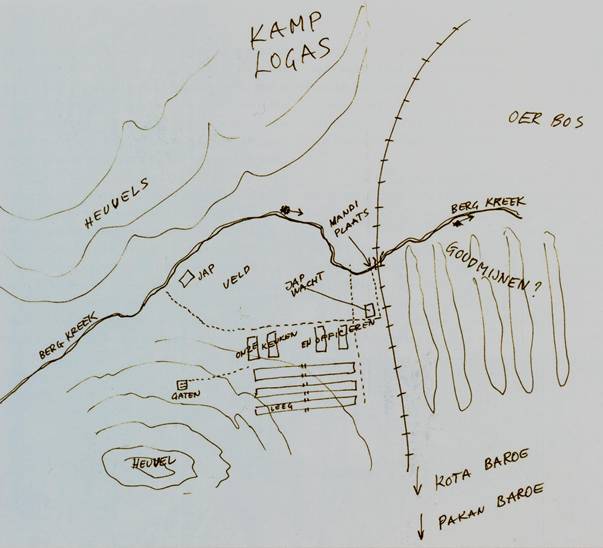 KAMP
LOGAS
OER BOS
HEUVELS
MANDI
PLAATS
BERG KREEK
JAP
VELD
JAP
WACHT
GOUDMIJNEN?
BERG KREEK
ONZE KEUKEN
EN OFFICIEREN
GATEN
LEEG
HEUVEL
KOTA BAROE
PAKAN BAROE